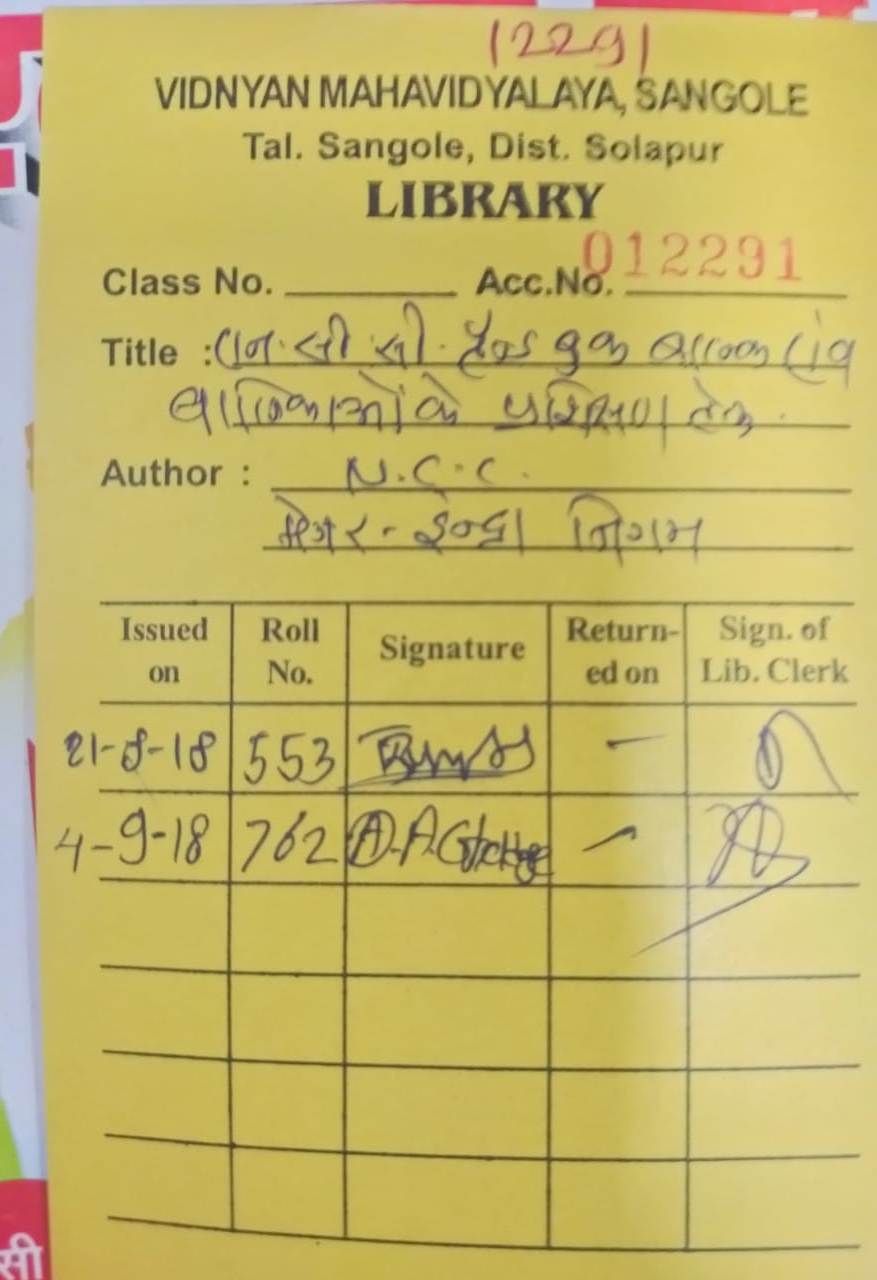 12291
VIDNYAN MAHAVIDYALAYA, SANGOLE
Tal. Sangole, Dist. Solapur
LIBRARY
Class No. Acc.No. 012291
Title : एन. सी सी. हॅन्ड बुक बालक एंव
बालिकाओं के प्रशिक्षण हेतू.
Author : N.C.C.
मेजर - इन्द्रा निगम
Issued on Roll No. Signature Return-ed on Sign. of Lib. Clerk
21-8-18 553 -
4-9-18 762 A.A. -
सी